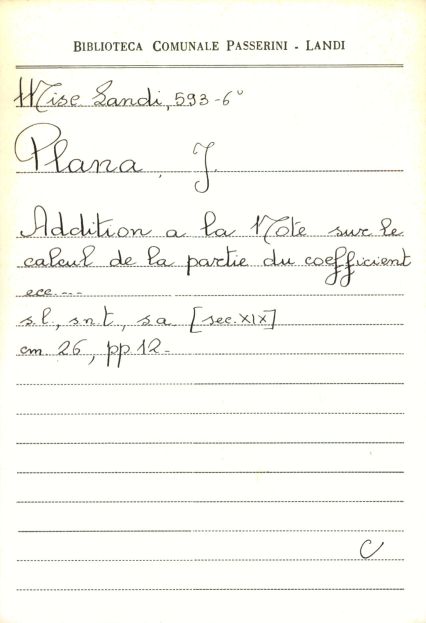 BIBLIOTECA COMUNALE PASSERINI - LANDI
Misc Landi, 593-6°
Plana, J.
Addition a la Note sur le
calcul de la partie du coefficient
ecc....
s.l, s.n.t, s.a. [sec. XIX]
cm. 26, pp 12-
C